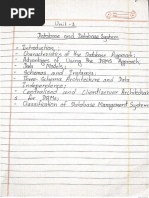 Unit - 1
Database and Database System
- Introduction,
- Characteristics of the Database Approach,
- Advantages of Using the DBMS Approach,
- Data Models,
- Schemas and Instances,
- Three Schema Architecture and Data
Independence,
- Centralized and Client/Server Architecture
for DBMS,
- Classification of Database Management System